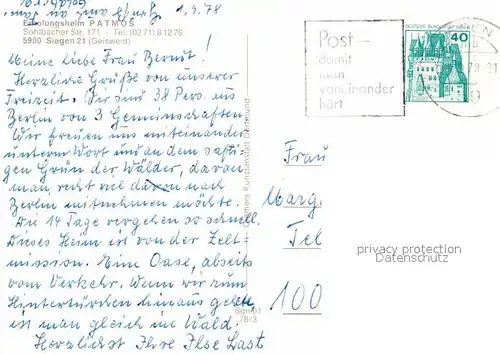 1.9.78
Erholungsheim PATMOS
Sohlbacher Str. 171 - Tel. (0271) 81276
5900 Siegen 21 (Geisweid)
Meine liebe Frau Berndt!
Herzliche Grüße von unserer
Freizeit. Wir sind 38 Pers. aus
Berlin von 3 Gemeinschaften
Wir freuen uns miteinander
unterm Wort und an dem safti-
gen Grün der Wälder, davon
man recht viel davon nach
Berlin mitnehmen möchte.
Die 14 Tage vergehen so schnell.
Dieses Heim ist von der Zelt=
mission. Eine Oase, abseits
vom Verkehr. Wenn wir zum
Hintertürchen hinaus gehen,
ist man gleich im Wald.
Herzlichst Ihre Ilse Last
Cramers Kunstanstalt Dortmund
Sgn 91
78/3
Post-
damit
man
voneinander
hört
DEUTSCHE BUNDESPOST
40
Frau
Marg.
Tel
100
privacy protection
Datenschutz